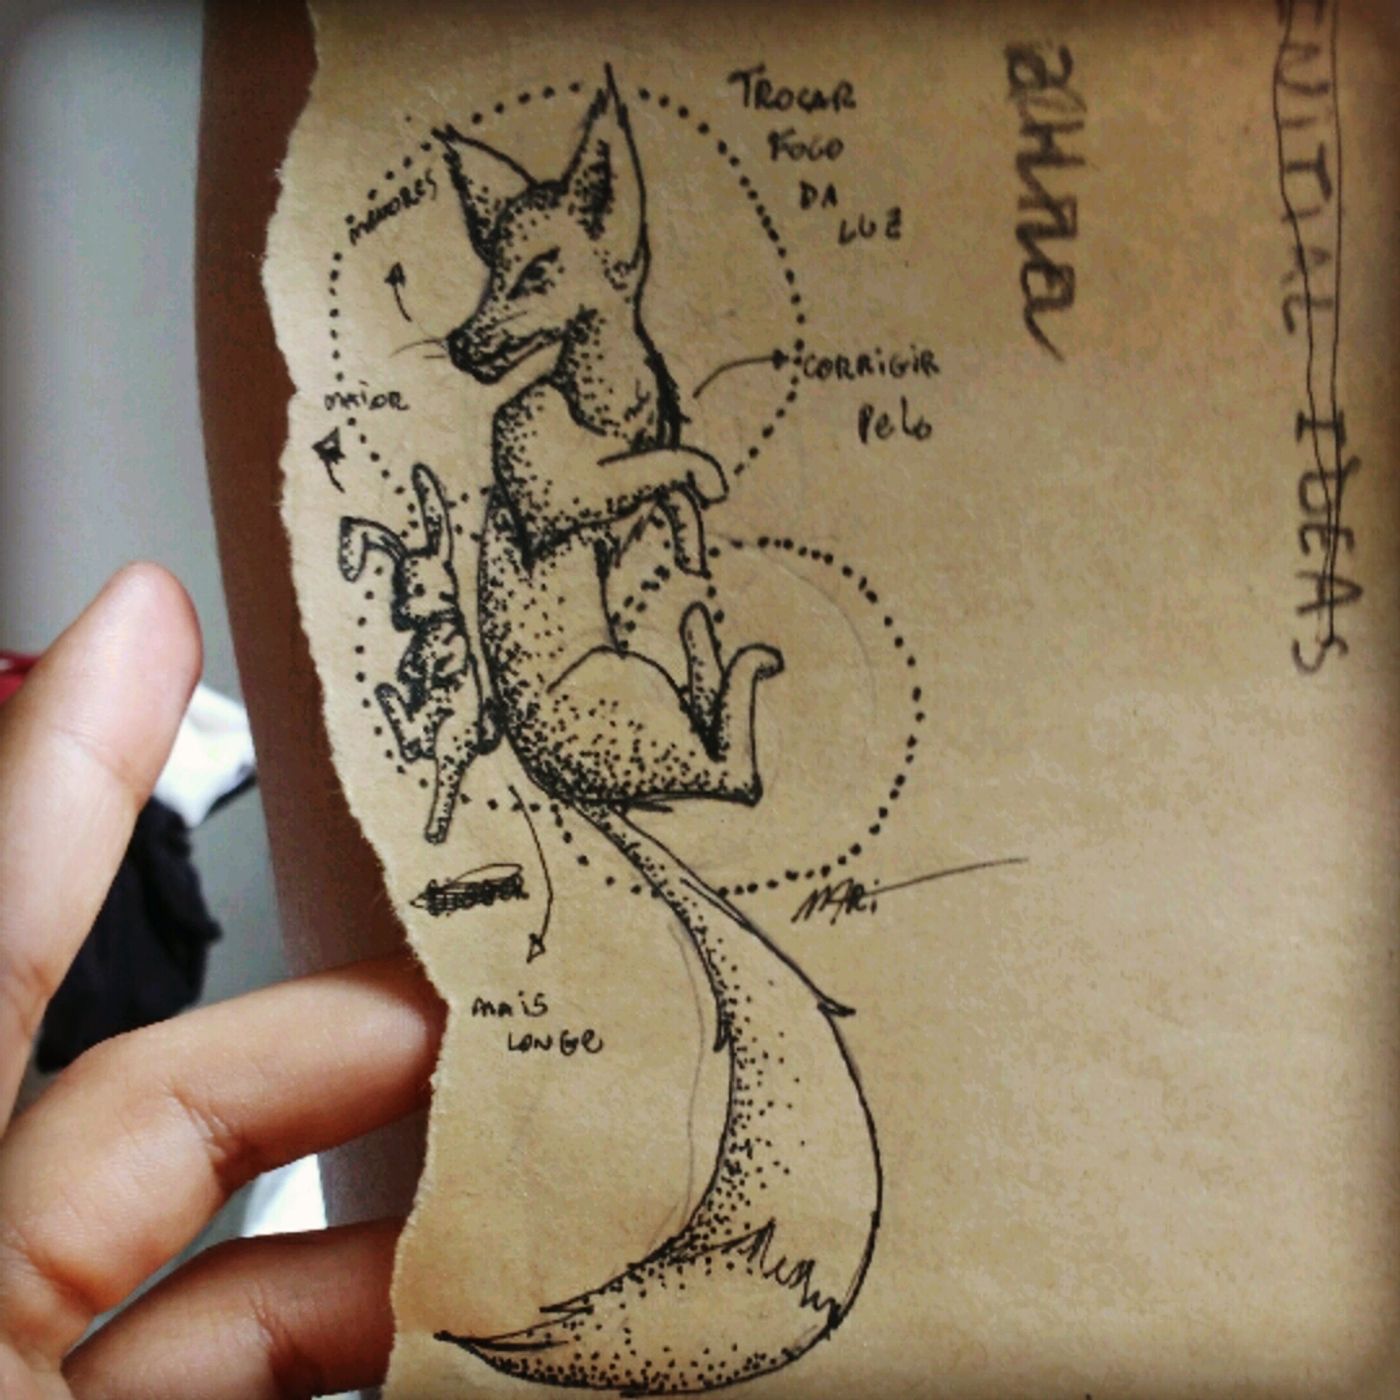 TROCAR
FOCO
DA
LUZ
MENORES
CORRIGIR
PELO
MAIOR
MARI
MAIS
LONGE
INITIAL IDEAS